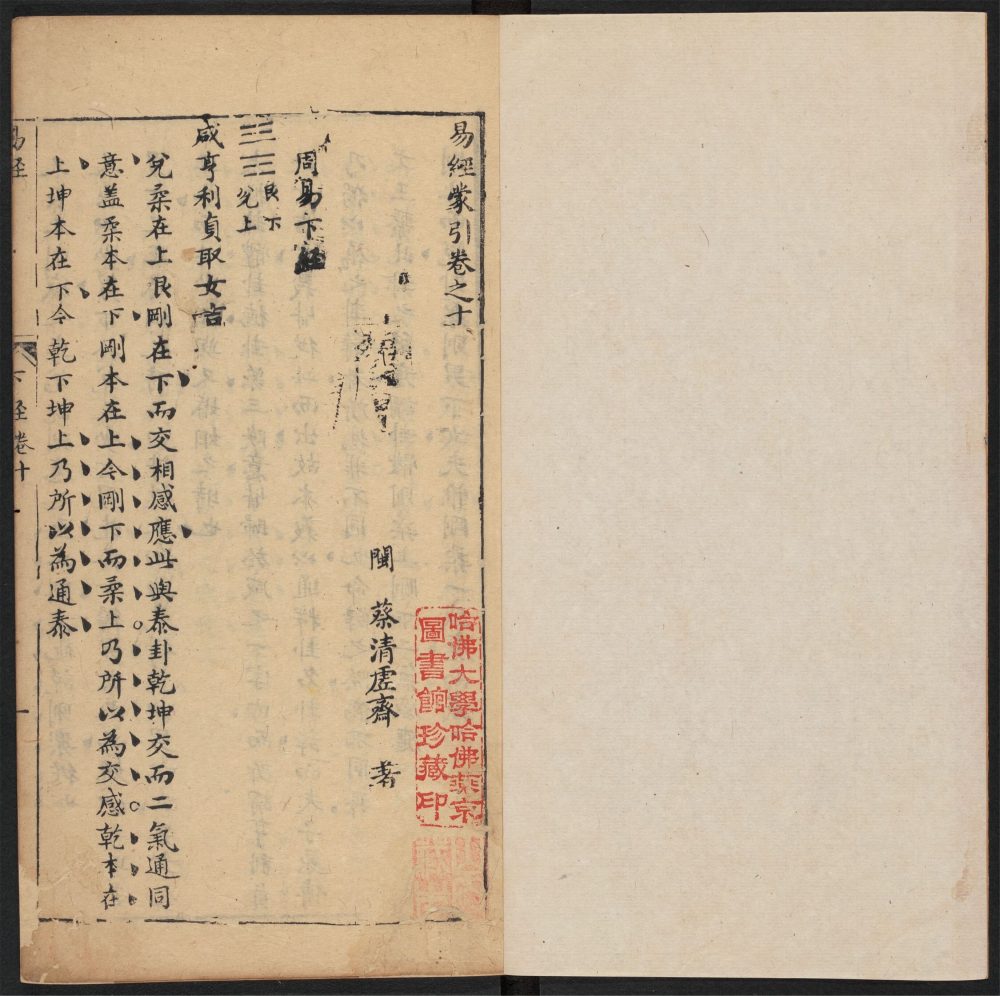 易經蒙引卷之十
閩 蔡清虛齋 著
周易下經
艮下
兌上
咸亨利貞取女吉
兌柔在上艮剛在下而交相感應此與泰卦乾坤交而二氣通同
意盖柔本在下剛本在上今剛下而柔上乃所以為交感乾本在
上坤本在下今乾下坤上乃所以為通泰
易經 下經卷十 一
哈佛大學哈佛燕京
圖書館珍藏印